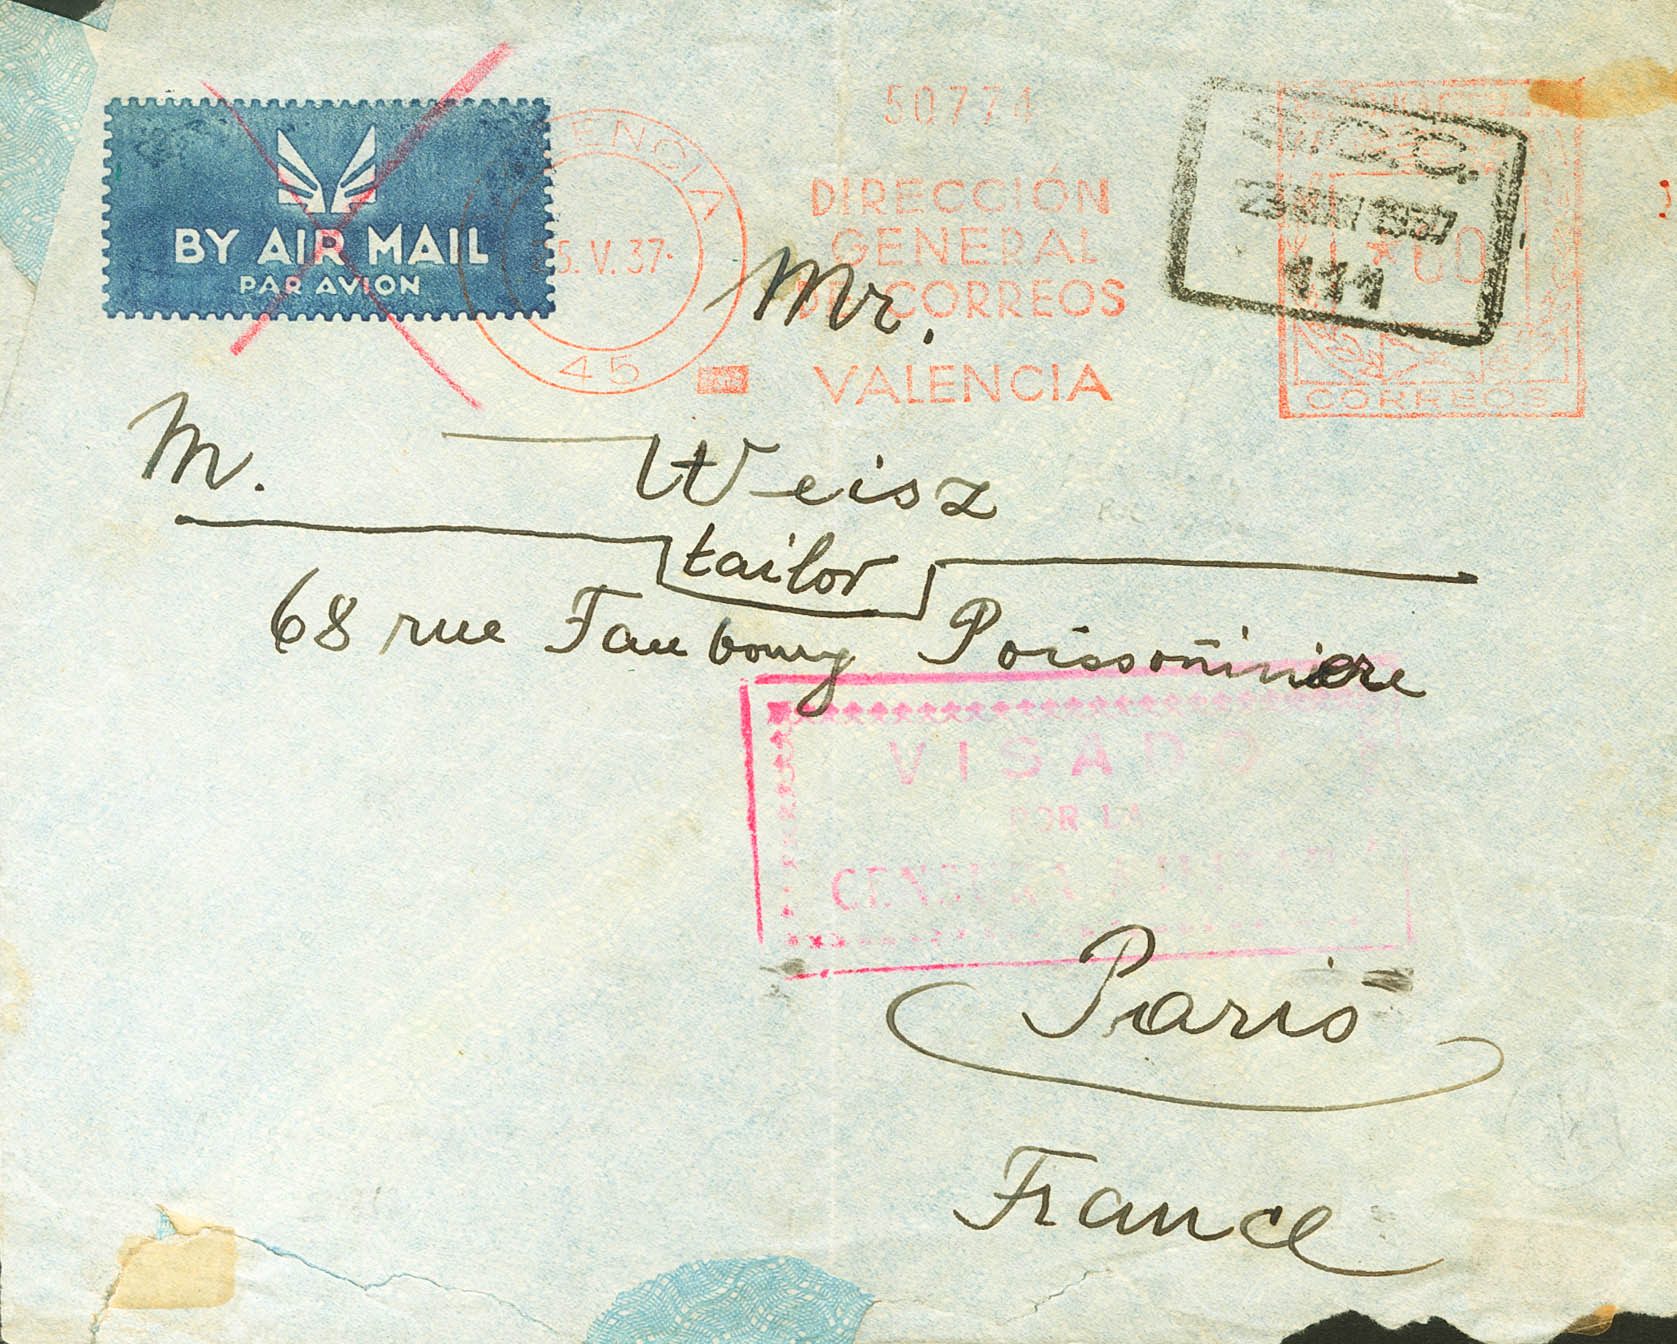 50774
BY AIR MAIL
PAR AVION
5.V.37.
45
DIRECCIÓN
GENERAL
DE CORREOS
VALENCIA
S.I.C.C.
1937
111
00
CORREOS
Mr.
M. Weisz
tailor
68 rue Faubourg Poissoñiniere
VISADO
POR LA
CENSURA
Paris
France